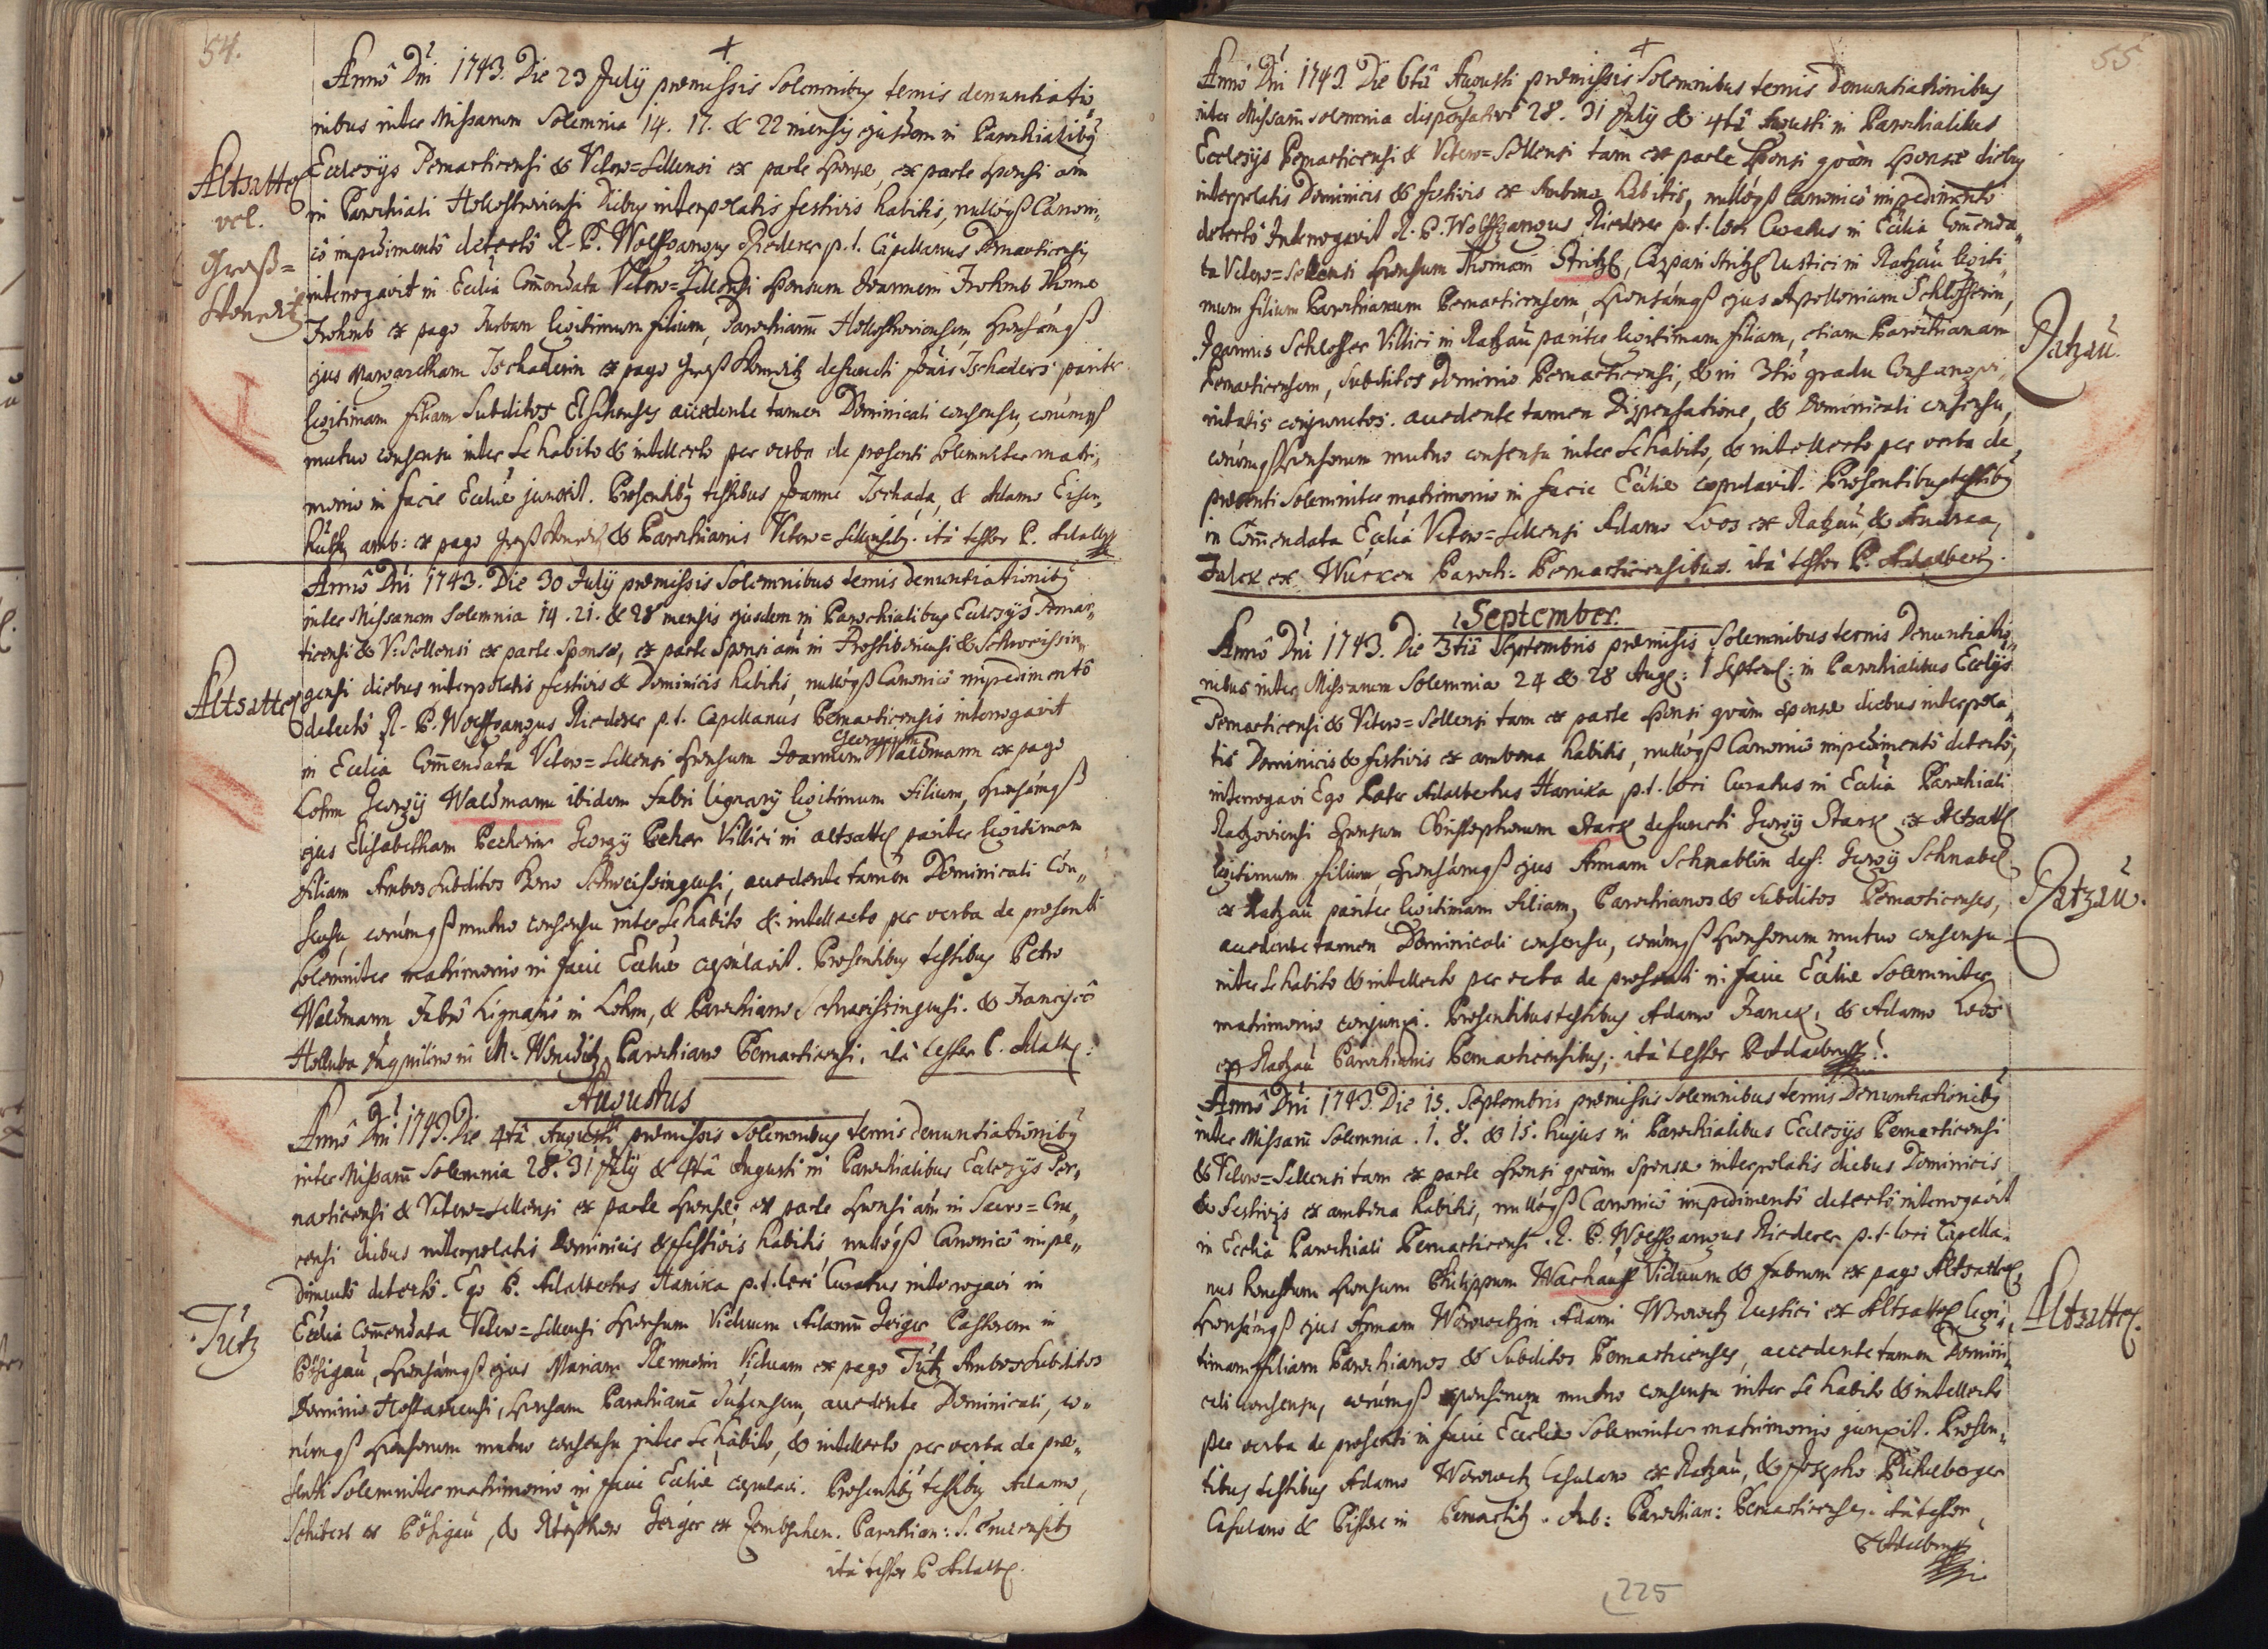 54.
Annô Dni 1743. Die 23 July præmissis Solemnibus ternis denuntiatio
nibus inter Missarum Solemnia 14. 17. & 22 mensis ejusdem in Parochialibus
Altsattel
Ecclesys Pernarticensi & Vetero=Sellensi ex parte Sponsæ, ex parte Sponsi aũ
vel.
in Parochiali Diebus interpolatis festivis habitis, nullóqß Canoni,,
Groß=
cô impedimentô detectô R. P. Wolffgangus Riederer p. t. Capellanus Pernarticensis
Wonetitz
interrogavit in Ecclia Com̄endata Vetero=Sellensi Sponsum Joannem Frohmb
Frohmb ex pago legitimum filium, Parochianũ Sponsámqß
ejus Margaretham Tschaderin ex pago Groß defuncti Tschaders pariter
legitimam filiam Subditos accedente tamen Dominicali consensu, eorúmqß
mutuo consensu inter Se habito & intellecto per verba de præsenti Solemniter matri,,
monio in facie Eccliæ junxit. Præsentibus testibus Joanne Tschada, & Adamo
amb: ex pago & Parochianis Vetero=Sellensibg. ità testor P. Adalb
Annô Dni 1743. Die 30 July præmissis Solemnibus ternis denuntiationibg
inter Missarum Solemnia 14. 21. & 28 mensis ejusdem in Parochialibus Ecclesys Pernar,,
ticensi & V: Sellensi ex parte Sponsæ, ex parte Sponsi aũ in Prostiborensi & Schweissin,,
Altsattel
gensi diebus interpolatis festivis & Dominicis habitis, nullóqß Canonicô impedimentô
detectô R. P. Wolffgangus Riederer p. t. Capellanus Pernarticensis interrogavit
Georgium
in Ecclia Com̄endata Vetero=Sellensi Sponsum Joannem Waldmann ex pago
Lohm Georgÿ Waldmann ibidem fabri lignarÿ legitimum filium, Sponsámqß
ejus Elisabetham Pecherin Georgÿ Pecher Villici in altsattel pariter legitimam
filiam Ambos Subditos Schweissingensi, accedente tamen Dominicali Con,,
sensu, eorúmqß mutuo consensu inter Se habito & intellecto per verba de præsenti
Solemniter matrimonio in facie Eccliæ copulavit. Præsentibus testibus Petro
Waldmann fabrô Lignariô in Lohm, & Parochiano Schweissingensi. & Franciscô
Holluba Inquilino in Parochiano Pernarticensi, ità testor P. Adalb:
Augustus
Annô Dni 1743. Die 4tâ Augusti præmissis Solemnibus ternis denuntiationibg
inter Missarũ Solemnia 28. 31 July & 4tâ Augusti in Parochialibus Ecclesys Per,,
narticensi & Vetero=Sellensi ex parte Sponsæ; ex parte Sponsi aũ in Sacro=Cru,,
censi diebus interpolatis Dominicis & festivis habitis, nullóqß Canonicô impe,,
dimentô detectô. Ego P. Adalbertus Hanika p. t. loci Curatus interrogavi in
Tútz
Ecclia Com̄endata Vetero=Sellensi Sponsum Viduum Adamũ Geiger Pastorem in
Pössigau, Sponsámqß ejus Mariam Viduam ex pago Tútz Ambos Subditos
Dominio Sponsam Parochianã accedente Dominicali, eo,,
rúmqß Sponsorum mutuo consensu inter Se habito, & intellecto per verba de præ,,
senti Solemniter matrimonio in facie Eccliæ copulavi. Præsentibg testibg Adamo
Schibert ex Pössigau, & Geiger ex Parochian: S. Crucensibg
ità testor P. Adalb.
55
Annô Dni 1743. Die 6tâ Augusti præmissis Solemnibus ternis Denuntiationibus
inter Missarũ solemnia 28. 31 July & 4tâ Augusti in Parochialibus
Ecclesys Pernarticensi & Vetero=Sellensi tam ex parte Sponsi quàm Sponsæ diebus
interpolatis Dominicis & festivis ex Ambona habitis, nullóqß Canonicô impedimentô
detectô Interrogavit R. P. Wolffgangus Riederer p. t. loci Curatus in Ecclia Com̄enda,,
ta Vetero=Sellensi Sponsum Thomam Stritzl, Caspari Stritzl Rustici in Ratzau legiti,,
mum filium Parochianum Pernarticensem, Sponsámqß ejus Apolloniam Schlosserin,
Ratzau.
Joannis Schlosser Villici in Ratzau pariter legitimam filiam, etiam Parochianam
Pernarticensem, Subditos Dominio Pernarticensi, & in 3tiô gradu Consangvi,,
nitatis conjunctos. accedente tamen Dispensatione, & Dominicali consensu,
eorúmqß Sponsorum mutuo consensu inter Se habito, & intellecto per verba de
præsenti Solemniter matrimonio in facie Eccliæ copulavit. Præsentibus testibg
in Com̄endata Ecclia Vetero=Sellensi Adamo Loos ex Ratzau, & Andrea
ex Paroch: Pernarticensibus. ità testor P. Adalbert.
September.
Annô Dni 1743. Die 3tiâ Septembris præmissis Solemnibus ternis Denuntiatio,,
nibus inter Missarum Solemnia 24 & 28 Aug: 1 Septem: in Parochialibus Ecclÿs
Pernarticensi & Vetero=Sellensi tam ex parte Sponsi quàm Sponsæ diebus interpola,,
tis Dominicis & festivis ex ambona habitis, nullóqß Canonicô impedimentô detectô,
interrogavi Ego Pater Adalbertus Hanika p. t. loci Curatus in Ecclia Parochiali
Ratzoviensi Sponsum Christophorum Stark defuncti Georgÿ Stark ex Altsattl
legitimum filium, Sponsámqß ejus Annam Schnablin def: Georgÿ Schnabel
Ratzau.
ex Ratzau pariter legitimam filiam, Parochianos & Subditos Pernarticenses,
accedente tamen Dominicali consensu, eorúmqß Sponsorum mutuo consensu
inter Se habito & intellecto per verba de præsenti in facie Eccliæ Solemniter
matrimonio conjunxi. Præsentibus testibus Adamo & Adamo Loos
ex Ratzau Parochianis Pernarticensibus; ità testor P. Adalbert.
Annô Dni 1743. Die 15. Septembris præmissis solemnibus ternis Denuntiationibg
inter Missarũ Solemnia. 1. 8. & 15. hujus in Parochialibus Ecclesys Pernarticensi
& Vetero=Sellensi tam ex parte Sponsi quàm Sponsæ interpolatis diebus Dominicis
& festivis ex ambona habitis, nullóqß Canonicô impedimentô detectô interrogavit
in Ecclia Parochiali Pernarticensi R. P. Wolffgangus Riederer p. t. loci Capella,,
nus honestum Sponsum Philippum Viduum & fabrum ex pago Altsattel,
Altsattel.
Sponsámqß ejus Annam Adami Rustici ex Altsattel legi,,
timam filiam Parochianos & Subditos Pernarticenses, accedente tamen Domini,,
cali consensu, eorúmqß sponsorum mutuo consensu inter Se habito & intellecto
per verba de præsenti in facie Eccliæ Solemniter matrimonio junxit. Præsen,,
tibus testibus Adamo Casulano ex Ratzau, & Josepho
Casulano & in Pernartitz. Amb: Parochian: Pernarticenses. ità testor
P. Adalbert
225